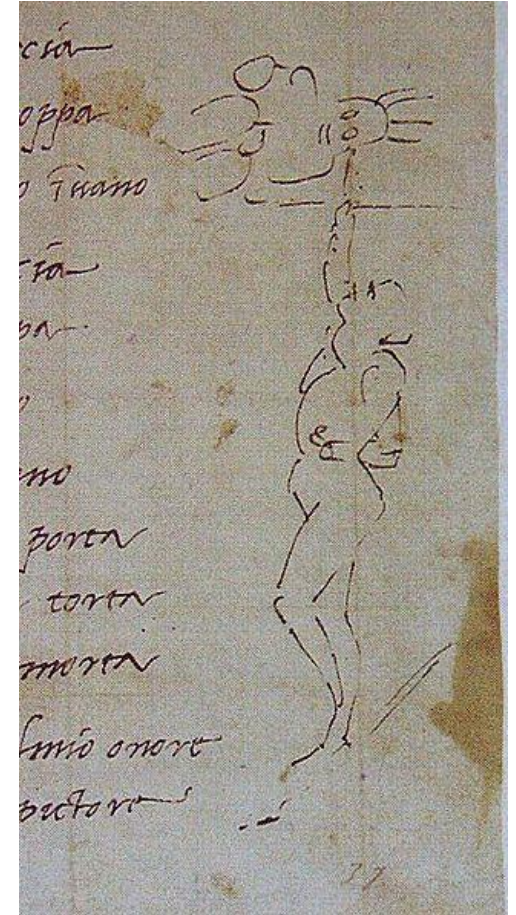 ccia
oppa
o
ccia
pa
o
ano
porta
torta
morta
lmio onore
pictore